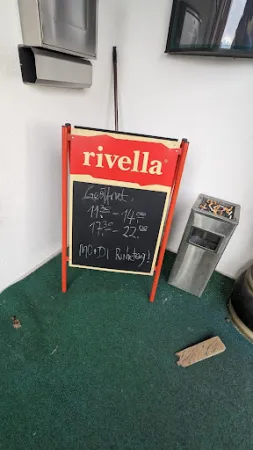 rivella
Geöffnet.
11.30 - 14.00
17.30 - 22.00
MO+DI Ruhetag!